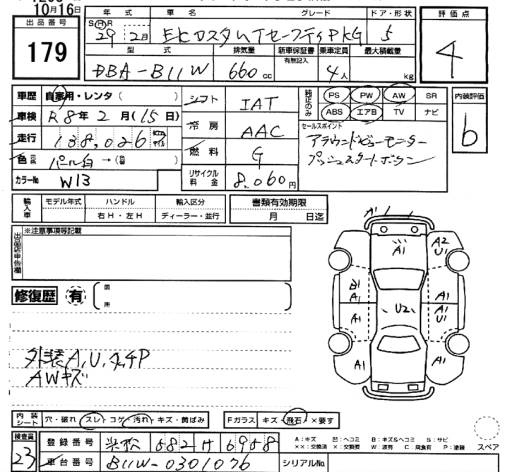 10月16日
出品番号
179
年式 車名 グレード ドア・形状
SHR 29年2月 EKカスタムTセーフティPKG 5
型式 排気量 新車保証書 乗車定員 最大積載量
有無記入
DBA-B11W 660cc 4人 kg
評価点
4
車歴 自家用・レンタ( )
車検 R8年2月(15日)
走行 138,026
色 パール白→(色 )
カラーNo W13
シフト IAT
冷房 AAC
燃料 G
リサイクル料金 8,060円
純正のみ PS PW AW SR
ABS エアB TV ナビ
セールスポイント
アラウンドビューモニター
プッシュスタートボタン
内装評価
b
輸入車 モデル年式 ハンドル 輸入区分
右H・左H ディーラー・並行
書類有効期限
月 日迄
出品店申告欄 ※注意事項等記載
修復歴 有 箇所
A1 A1 A2 U1
B1 A1 A1 U2 A1 U1 A1
外装A,U,
AWキズ
内装シート 穴・破れ スレ・コゲ 汚れ・キズ・黄ばみ
Fガラス キズ・飛石・×要す
検査員 23
登録番号 582 け 6958
車台番号 B11W-0301076
シリアルNo
A:キズ U:ヘコミ B:キズ&ヘコミ S:サビ
××:交換済 ×:要交換 W:波有 C:腐食有 P:塗装
スペア